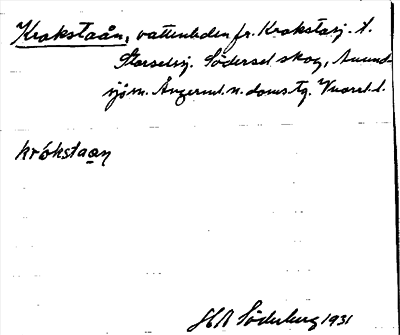 Krokstaån, vattenleden fr. Krokstasj. t.
Storselsj. Södersel skog, Anund-
sjö sn. Ångerml. n. doms. tg. Vnorrl. l.
krókstaan
HB Söderberg 1931